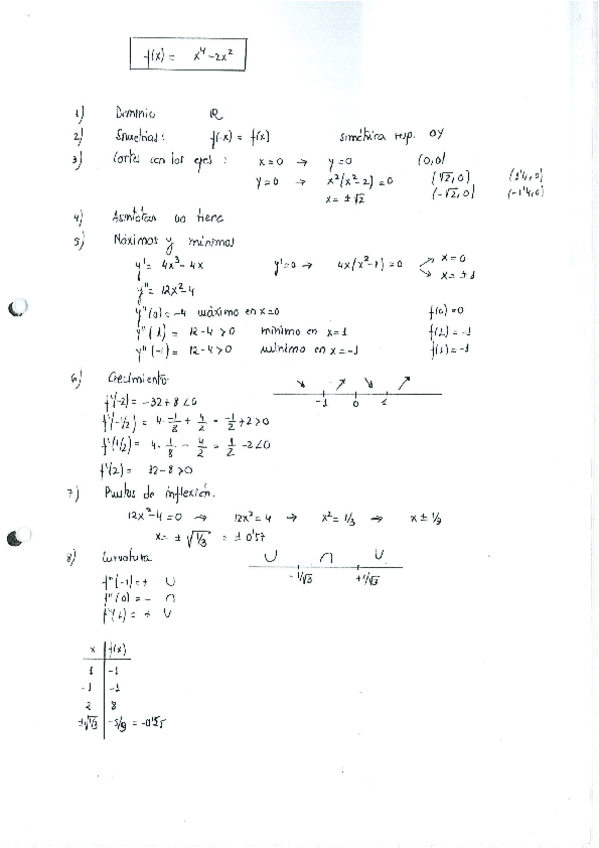 f(x) = x⁴-2x²
1) Dominio ℝ
2) Simetrías: f(-x) = f(x) simétrica resp. OY
3) Cortes con los ejes: x=0 → y=0 (0,0)
y=0 → x²(x²-2)=0 (√2,0) (1'4,0)
x=±√2 (-√2,0) (-1'4,0)
4) Asíntotas no tiene
5) Máximos y mínimos
y'= 4x³-4x y'=0 → 4x(x²-1)=0 x=0
x=±1
y''= 12x²-4
y''(0)=-4 máximo en x=0 f(0)=0
y''(1)= 12-4>0 mínimo en x=1 f(1)=-1
y''(-1)= 12-4>0 mínimo en x=-1 f(1)=-1
6) Crecimiento ↘ ↗ ↘ ↗
-1 0 1
f'(-2)= -32+8<0
f'(-1/2)= 4·-1/8 + 4/2 = -1/2+2>0
f'(1/2)= 4·1/8 - 4/2 = 1/2-2<0
f'(2)= 32-8>0
7) Puntos de inflexión.
12x²-4=0 → 12x²=4 → x²=1/3 → x±1/9
x= ±√1/3 = ±0'57
8) Curvatura ∪ ∩ ∪
-1/√3 +1/√3
f''(-1)=+ ∪
f''(0)=- ∩
f''(1)=+ ∪
x f(x)
1 -1
-1 -1
2 8
±√1/3 -5/9=-0'55